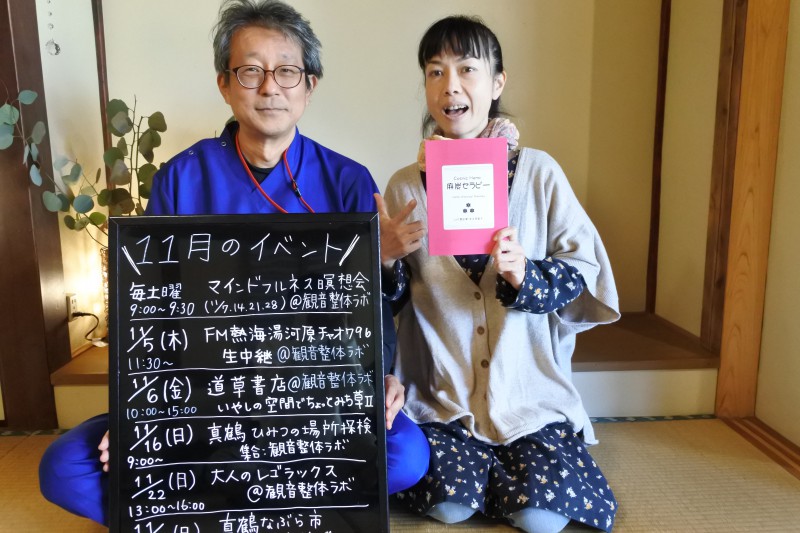 11月のイベント
毎土曜 マインドフルネス瞑想会
9:00~9:30 (11/7.14.21.28)@観音整体ラボ
11/5(木) FM熱海湯河原チャオ796
11:30~ 生中継@観音整体ラボ
11/6(金) 道草書店@観音整体ラボ
10:00~15:00 いやしの空間でちょっとみち草II
11/16(日) 真鶴ひみつの場所探検
9:00~ 集合:観音整体ラボ
11/22(日) 大人のレゴラックス
13:00~16:00 @観音整体ラボ
真鶴なぶら市
麻炭セラピー